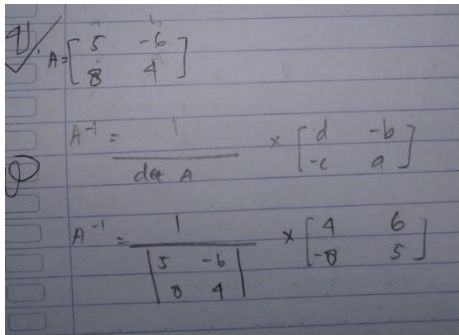 9) A = [ 5 -6
8 4 ]
A⁻¹ = 1 / det A × [ d -b
-c a ]
A⁻¹ = 1 / | 5 -6
8 4 | × [ 4 6
-8 5 ]